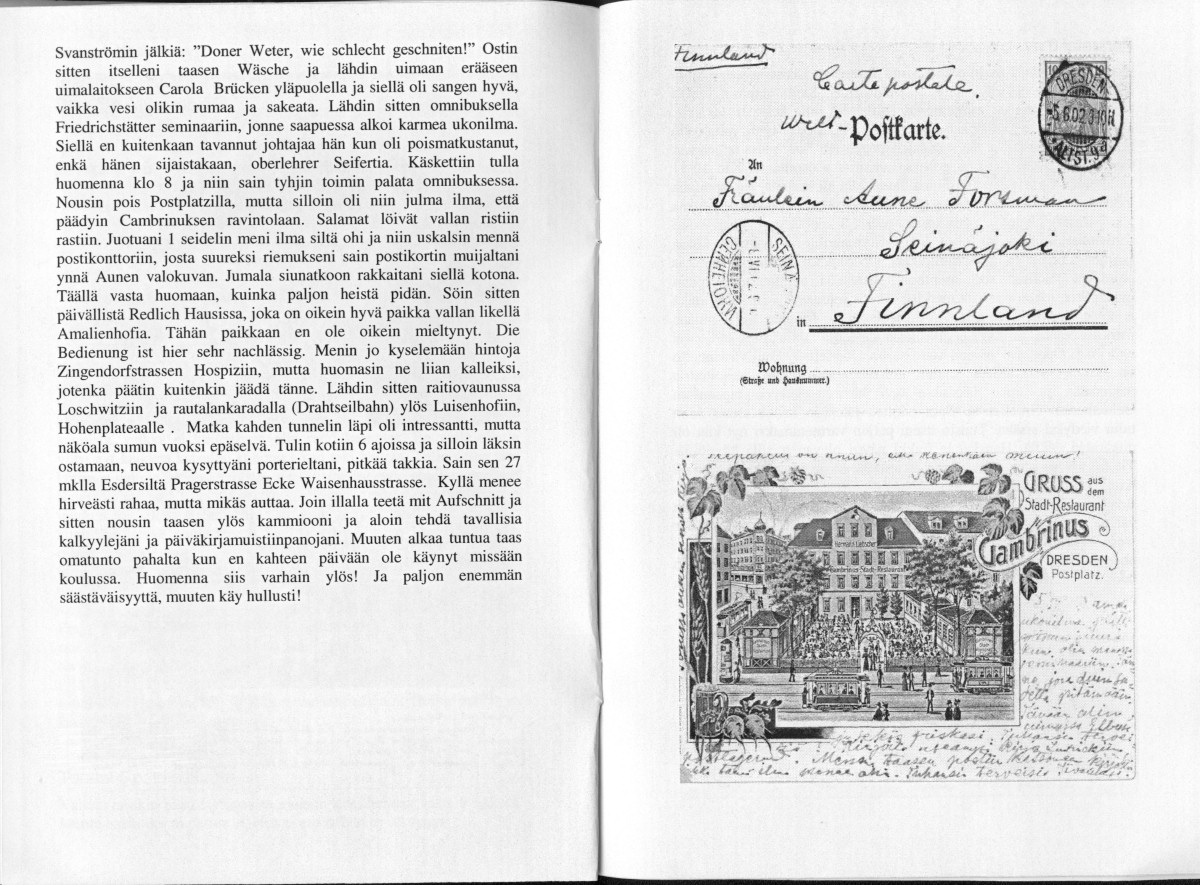 Svanströmin jälkiä: ”Doner Weter, wie schlecht geschniten!” Ostin
sitten itselleni taasen Wäsche ja lähdin uimaan erääseen
uimalaitokseen Carola Brücken yläpuolella ja siellä oli sangen hyvä,
vaikka vesi olikin rumaa ja sakeata. Lähdin sitten omnibuksella
Friedrichstätter seminaariin, jonne saapuessa alkoi karmea ukonilma.
Siellä en kuitenkaan tavannut johtajaa hän kun oli poismatkustanut,
enkä hänen sijaistakaan, oberlehrer Seifertia. Käskettiin tulla
huomenna klo 8 ja niin sain tyhjin toimin palata omnibuksessa.
Nousin pois Postplatzilla, mutta silloin oli niin julma ilma, että
päädyin Cambrinuksen ravintolaan. Salamat löivät vallan ristiin
rastiin. Juotuani 1 seidelin meni ilma siltä ohi ja niin uskalsin mennä
postikonttoriin, josta suureksi riemukseni sain postikortin muijaltani
ynnä Aunen valokuvan. Jumala siunatkoon rakkaitani siellä kotona.
Täällä vasta huomaan, kuinka paljon heistä pidän. Söin sitten
päivällistä Redlich Hausissa, joka on oikein hyvä paikka vallan likellä
Amalienhofia. Tähän paikkaan en ole oikein mieltynyt. Die
Bedienung ist hier sehr nachlässig. Menin jo kyselemään hintoja
Zingendorfstrassen Hospiziin, mutta huomasin ne liian kalleiksi,
jotenka päätin kuitenkin jäädä tänne. Lähdin sitten raitiovaunussa
Loschwitziin ja rautalankaradalla (Drahtseilbahn) ylös Luisenhofiin,
Hohenplateaalle . Matka kahden tunnelin läpi oli intressantti, mutta
näköala sumun vuoksi epäselvä. Tulin kotiin 6 ajoissa ja silloin läksin
ostamaan, neuvoa kysyttyäni porterieltani, pitkää takkia. Sain sen 27
mklla Esdersiltä Pragerstrasse Ecke Waisenhausstrasse. Kyllä menee
hirveästi rahaa, mutta mikäs auttaa. Join illalla teetä mit Aufschnitt ja
sitten nousin taasen ylös kammiooni ja aloin tehdä tavallisia
kalkyylejäni ja päiväkirjamuistiinpanojani. Muuten alkaa tuntua taas
omatunto pahalta kun en kahteen päivään ole käynyt missään
koulussa. Huomenna siis varhain ylös! Ja paljon enemmän
säästäväisyyttä, muuten käy hullusti!
Finnland
Carte postale.
Welt-Postkarte.
DRESDEN
-5.6.02.
ALTST.
An
Fräulein Aune Forsman
Seinäjoki
in Finnland
SEINÄ
Wohnung
(Straße und Hausnummer.)
GRUSS aus
dem
Stadt-Restaurant
Gambrinus
DRESDEN
Postplatz.
Hermann Liebscher
Gambrinus Stadt-Restaurant